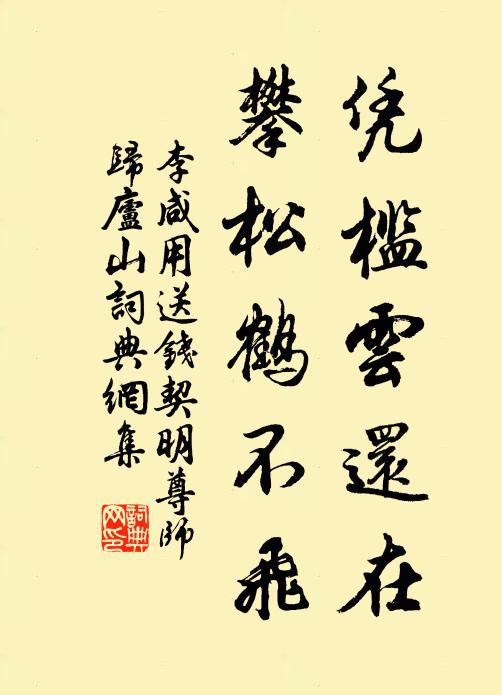 凭檻雲還在
攀松鶴不飛
李咸用送錢契明尊師
歸廬山詞典網集
詞典
网印